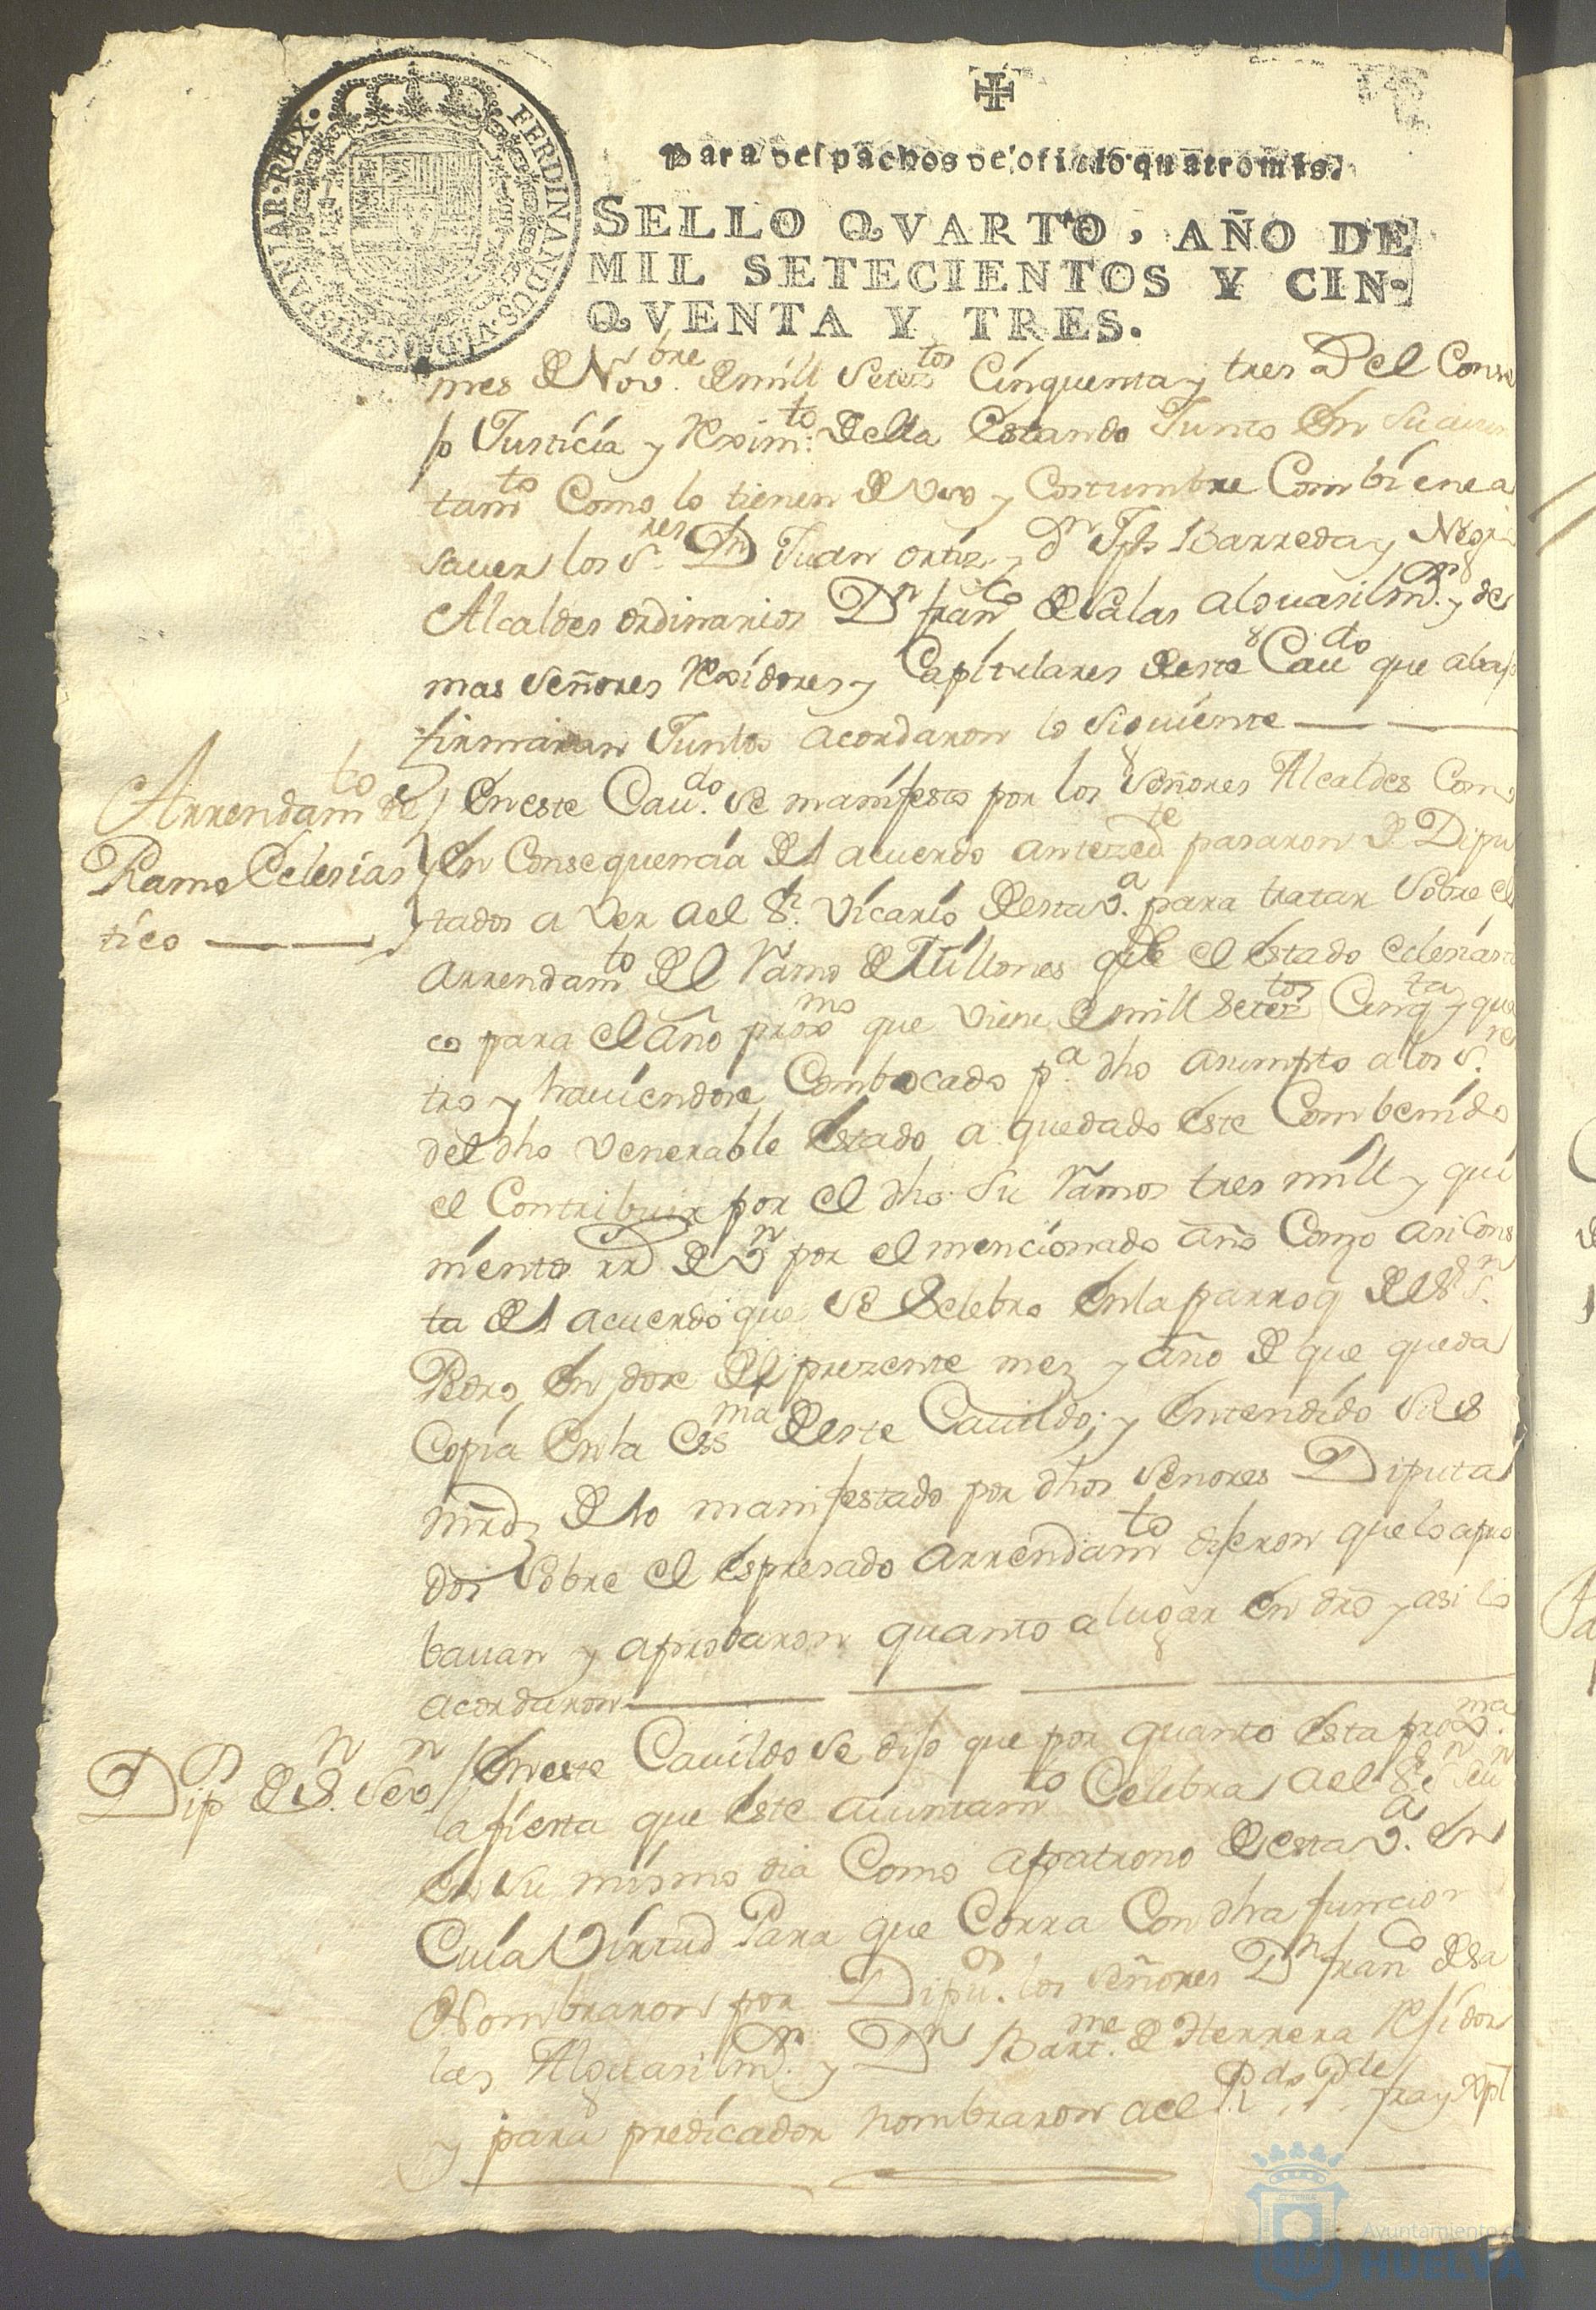 FERDINANDUS·VI·D·G·HISPANIAR·REX·
Para despachos de oficio quatro mrs.
SELLO QVARTO, AÑO DE
MIL SETECIENTOS Y CIN-
QVENTA Y TRES.
mes de Novbre. de mill Seteztos Cinquenta y tres el Conse
jo Justicia y Reximto. della Estando Junto En su aiun
tamto Como lo tienen de uso y Costumbre Combiene a
saver los Sres. Dn Juan ortiz y Dn Jph Barreda y Negri
Alcaldes ordinarios Dn franco de Salas alguasil mr. y de
mas Señores Rexidores y Capitulares deste Caudo que abajo
firmaran Juntos acordaron lo siguiente
Arrendamto de
Ramo Eclesias
tico
En este Caudo. se manifesto por los Señores Alcaldes Como
En Consequencia del acuerdo antezedte pasaron de Dipu
tados a Ver a el Sr. Vicario desta Va. para tratar Sobre el
arrendamto del Ramo de Millones que el Estado eclesiasti
co para el año proxmo que viene de mill Seteztos Cinqta y qua
tro y haviendose Combocado pa. dho asumpto a los Sres
del dho Venerable Estado a quedado Este Combenido
el Contribuir por el dho su Ramos tres mill y qui
niento rrs de Vn por el mencionado año Como asi Cons
ta del acuerdo que se Zelebro En la parroq del Sr Sn.
Pedro En doze del prezente mez y año de que queda
Copia En la Essma deste Cavildo; y Entendido sus
mrdz de lo manifestado por dhos Señores Diputa
dos Sobre el Espresado arrendamto dijeron que lo apro
bavan y aprobaron quanto a lugar En dro y asi lo
acordaron
Dip de Sn. Sevn
En este Cavildo se dijo que por quanto Esta proxma.
la fiesta que Este aiuntamto Celebra a el Sr Sn Sevn
En su mismo dia Como a patrono desta Va. En
Cuia Virtud Para que Corra Con dha funcion
Nombraron por Dipus. los Señores Dn franco de Sa
las Alguasil mr. y Dn Bartme. de Herrera Rejidor
y para predicador nombraron a el R. Pdo Pde fray Xpl
Ayuntamiento de
HUELVA